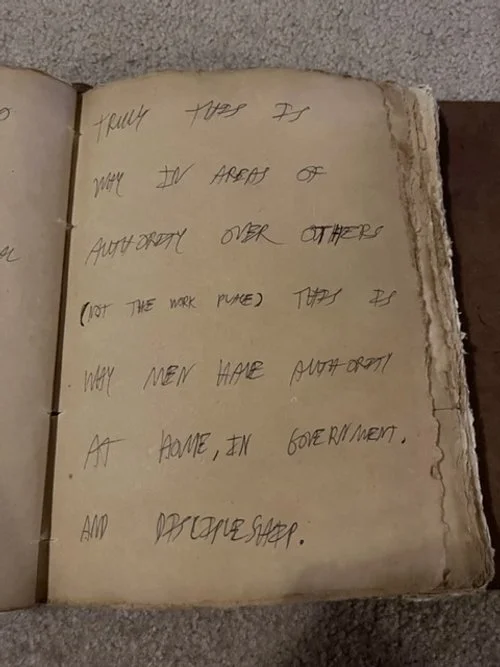 TRULY THIS IS
WHY IN AREAS OF
AUTHORITY OVER OTHERS
(NOT THE WORK PLACE) THIS IS
WHY MEN HAVE AUTHORITY
AT HOME, IN GOVERNMENT.
AND DISCIPLESHIP.